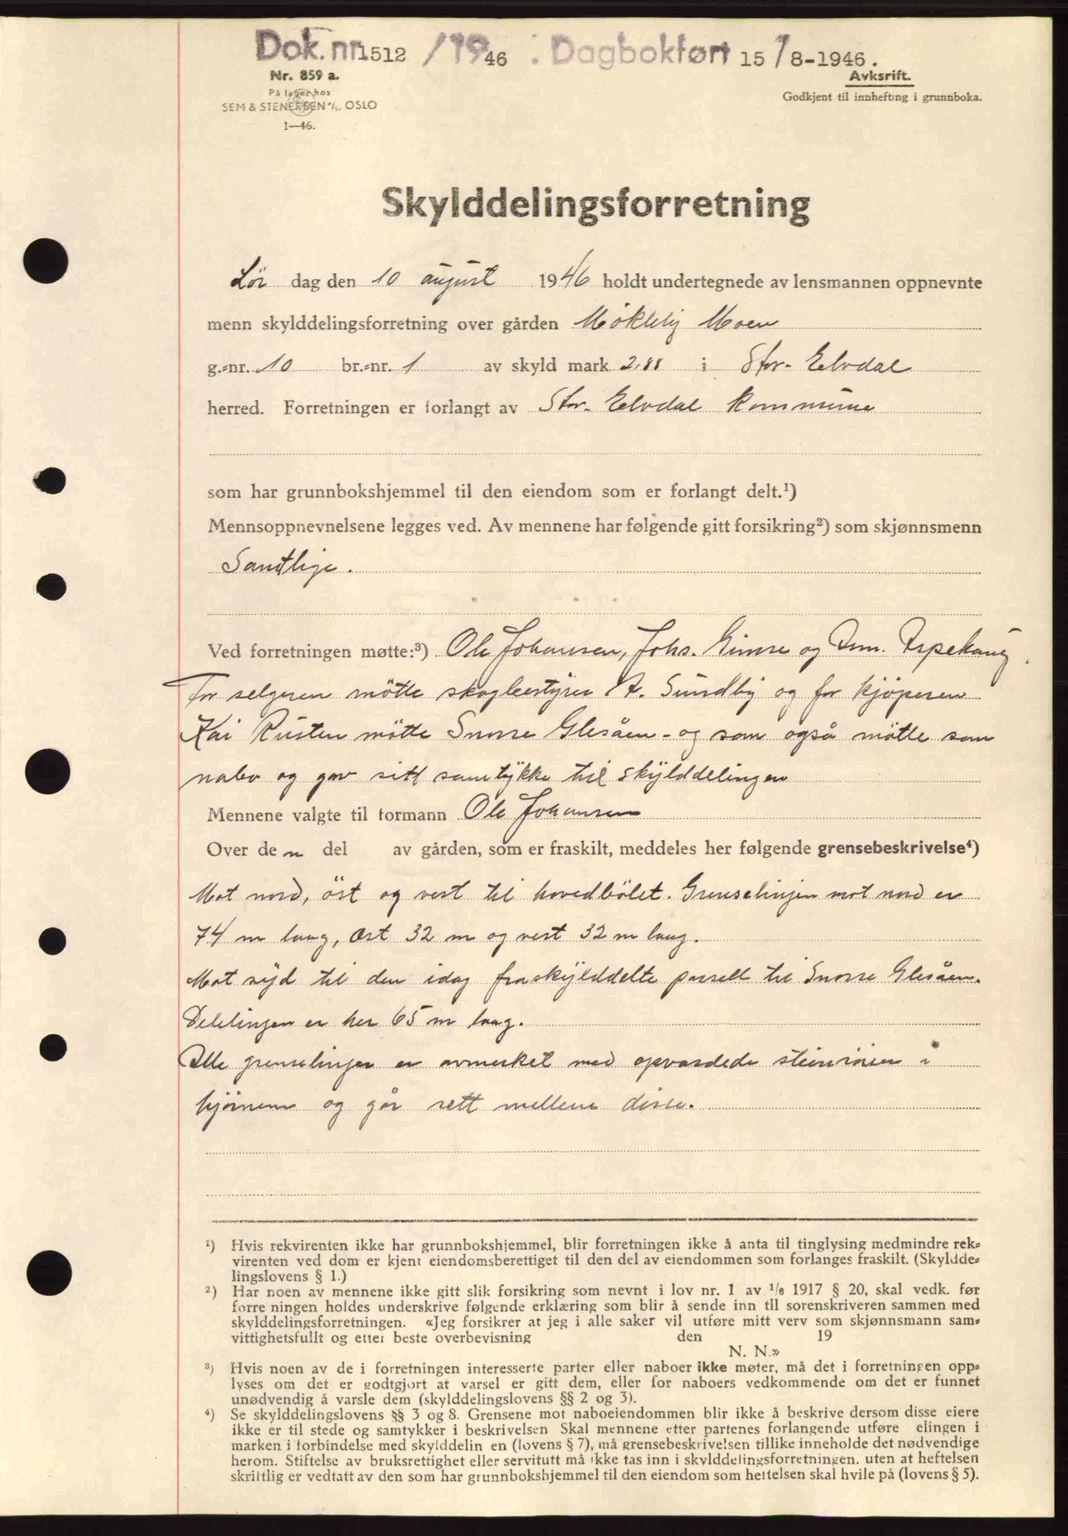 Dok. nr. 1512 /1946 . Dagbokført 15/8-1946.
Nr. 859 a.
Avkskrift.
På lager hos
Godkjent til innhefting i grunnboka.
SEM & STENERSEN A/S, OSLO
1—46.
Skylddelingsforretning
Lør dag den 10 august 1946 holdt undertegnede av lensmannen oppnevnte
menn skylddelingsforretning over gården Møkleby Moen
g.-nr. 10 br.-nr. 1 av skyld mark 2,88 i Stor-Elvdal
herred. Forretningen er forlangt av Stor-Elvdal kommune
som har grunnbokshjemmel til den eiendom som er forlangt delt.¹)
Mennsoppnevnelsene legges ved. Av mennene har følgende gitt forsikring²) som skjønnsmenn
Samtlige.
Ved forretningen møtte:³) Ole Johansen, Johs. Gimse og Arn. Espekang.
For selgeren møtte skogbestyrer A. Sundby og for kjøperen
Kai Rusten møtte Snorre Glesåen - og som også møtte som
nabo og gav sitt samtykke til skylddelingen
Mennene valgte til formann Ole Johansen
Over den del av gården, som er fraskilt, meddeles her følgende grensebeskrivelse⁴)
Mot nord, öst og vest til hovedbölet. Grenselinjen mot nord er
74 m lang, öst 32 m og vest 32 m lang.
Mot syd til den idag fraskylddelte parsell til Snorre Glesåen.
Delelinjen er her 65 m lang.
Alle grenselinjer er avmerket med opvardede steinröiser i
hjörnene og går rett mellem disse.
¹) Hvis rekvirenten ikke har grunnbokshjemmel, blir forretningen ikke å anta til tinglysing medmindre rek-
virenten ved dom er kjent eiendomsberettiget til den del av eiendommen som forlanges fraskilt. (Skyldde-
lingslovens § 1.)
²) Har noen av mennene ikke gitt slik forsikring som nevnt i lov nr. 1 av 1/6 1917 § 20, skal vedk. før
forre ningen holdes underskrive følgende erklæring som blir å sende inn til sorenskriveren sammen med
skylddelingsforretningen. «Jeg forsikrer at jeg i alle saker vil utføre mitt verv som skjønnsmann sam-
vittighetsfullt og etter beste overbevisning den 19
N. N.»
³) Hvis noen av de i forretningen interesserte parter eller naboer ikke møter, må det i forretningen opp-
lyses om det er godtgjort at varsel er gitt dem, eller for naboers vedkommende om det er funnet
unødvendig å varsle dem (skylddelingslovens §§ 2 og 3).
⁴) Se skylddelingslovens §§ 3 og 8. Grensene mot naboeiendommen blir ikke å beskrive dersom disse eiere
ikke er til stede og samtykker i beskrivelsen Skal mennene etter partenes forlangende utføre elingen i
marken i forbindelse med skylddelin en (lovens § 7), må grensebeskrivelsen tillike inneholde det nødvendige
herom. Stiftelse av bruksrettighet eller servitutt må ikke tas inn i skylddelingsforretningen, uten at heftelsen
skriftlig er vedtatt av den som har grunnbokshjemmel til den eiendom som heftelsen skal hvile på (lovens § 5).